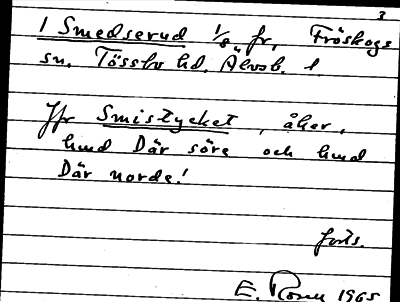 3
1 Smedserud 1/8 fr, Fröskogs
sn. Tössbo hd. Älvsb. l
Jfr Smistycket, åker,
hmd Där söre och hmd
Där norde!
forts.
E. Rosen 1965